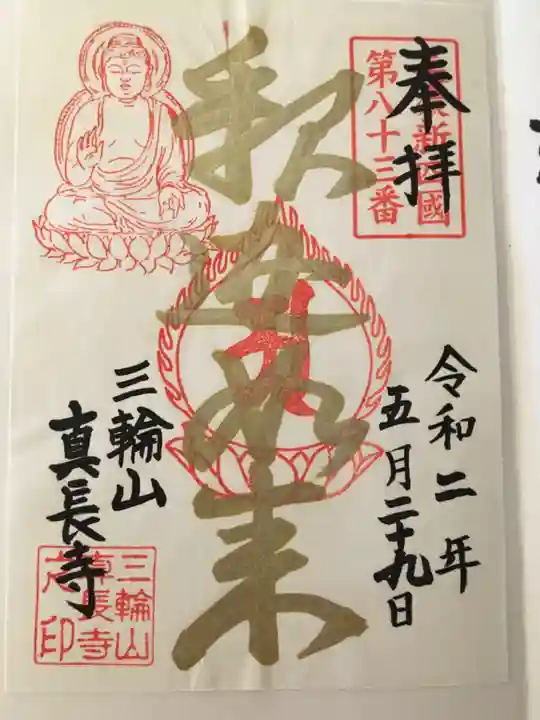 奉拝
新西國
第八十三番
令和二年
五月二十九日
釈迦如来
三輪山
真長寺
三輪山
真長寺
之印